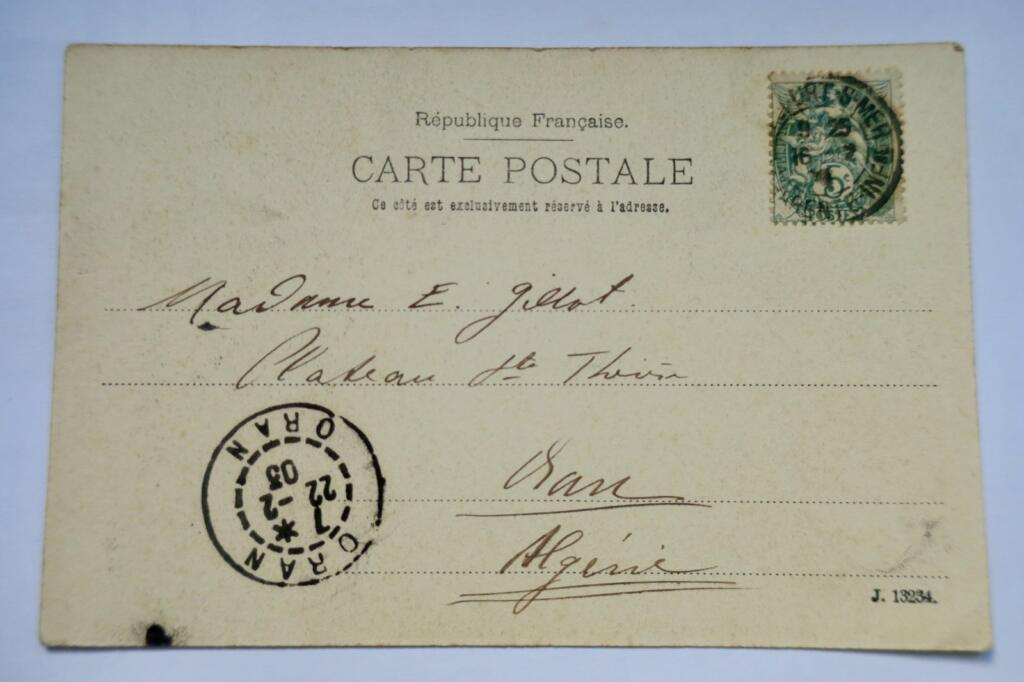 République Française.
CARTE POSTALE
Ce côté est exclusivement réservé à l'adresse.
5
POSTES
Madame E. Gillot
Plateau Ste Thérèse
Oran
Algérie
ORAN
7
22 -2
03
*
ORAN
J. 13234.